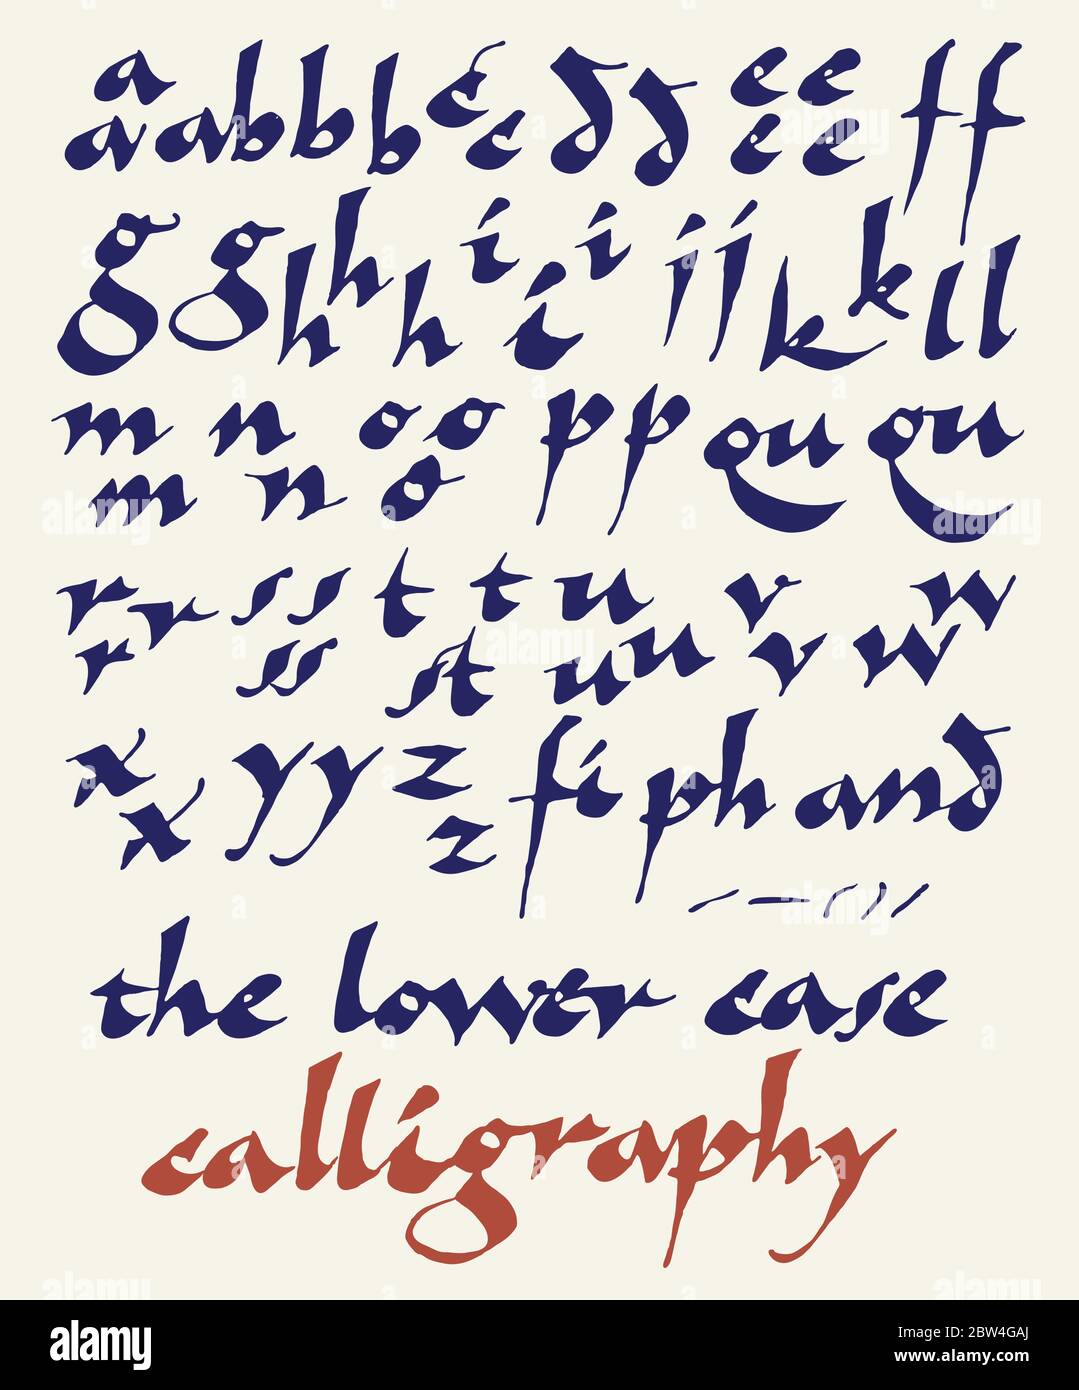 a
a a b b b c c d d e e f f
e e
g g h h h i i i j j k k l l
m n o o p p qu qu
m n o
r r s s t t u v w
r s s st u u v w
x y y z fi ph and
x z
the lower case
calligraphy
alamy
Image ID: 2BW4GAJ
www.alamy.com